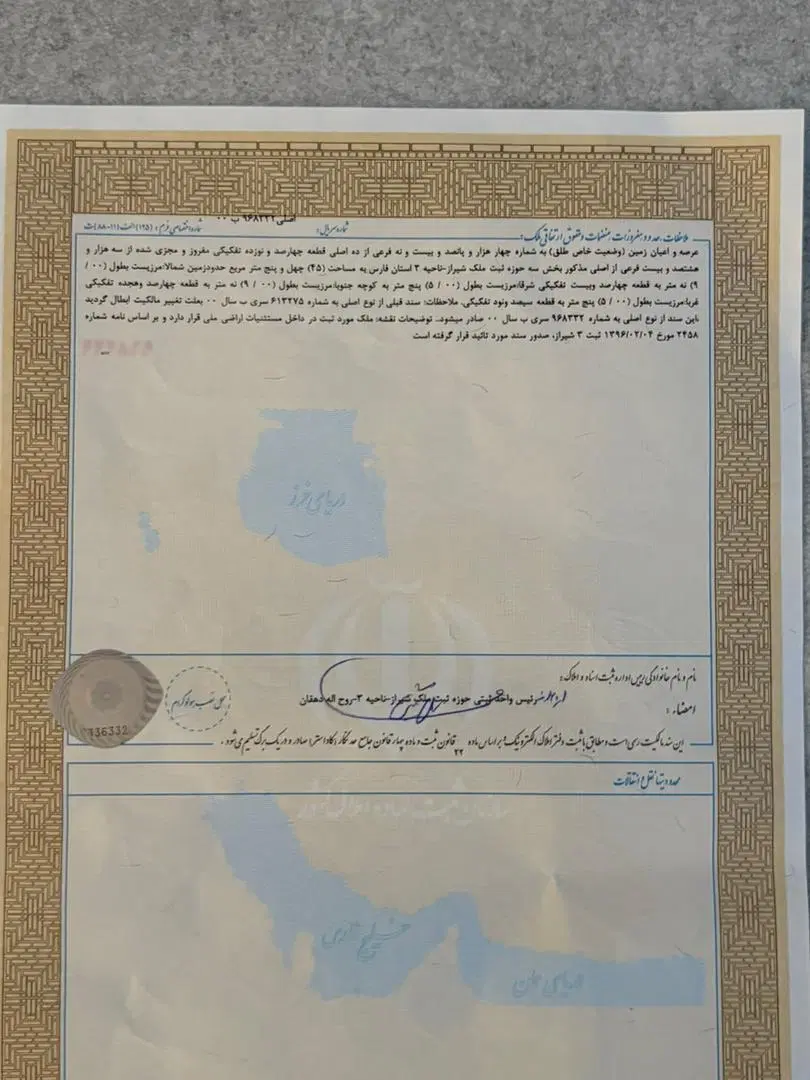 اصلی ۹۶۸۳۳۲ ب ۰۰
ملاحظات، حدود و مفروزات، منضمات و حقوق ارتفاقی ملک:
شماره سریال:
عرصه و اعیان زمین (وضعیت خاص طلق) به شماره چهار هزار و پانصد و بیست و نه فرعی از ده اصلی قطعه چهارصد و نوزده تفکیکی مفروز و مجزی شده از سه هزار و
هشتصد و بیست فرعی از اصلی مذکور بخش سه حوزه ثبت ملک شیراز-ناحیه ۳ استان فارس به مساحت (۴۵) چهل و پنج متر مربع حدودزمین شمالا:مرزیست بطول (۰۰ /
۹) نه متر به قطعه چهارصد وبیست تفکیکی شرقا:مرزیست بطول (۰۰ / ۵) پنج متر به کوچه جنوبا:مرزیست بطول (۰۰ / ۹) نه متر به قطعه چهارصد وهجده تفکیکی
غربا:مرزیست بطول (۰۰ / ۵) پنج متر به قطعه سیصد ونود تفکیکی. ملاحظات: سند قبلی از نوع اصلی به شماره ۶۱۳۲۷۵ سری ب سال ۰۰ بعلت تغییر مالکیت ابطال گردید
،این سند از نوع اصلی به شماره ۹۶۸۳۳۲ سری ب سال ۰۰ صادر میشود. توضیحات نقشه: ملک مورد ثبت در داخل مستثنیات اراضی ملی قرار دارد و بر اساس نامه شماره
۲۴۵۸ مورخ ۱۳۹۶/۰۲/۰۴ ثبت ۳ شیراز، صدور سند مورد تائید قرار گرفته است
دریای خزر
نام و نام خانوادگی رییس اداره ثبت اسناد و املاک:
رئیس واحد ثبتی حوزه ثبت ملک شیراز-ناحیه ۳-روح اله دهقان
امضاء:
محل نصب هولوگرام
336332
این سند مالکیت رسمی است و مطابق با ثبت دفتر املاک الکترونیک و بر اساس ماده ۲۲ قانون ثبت و ماده چهار قانون جامع حدنگار (کاداستر) صادر و در یک برگ تسلیم می‌شود.
محدودیتها نقل و انتقالات
خلیج فارس
دریای عمان